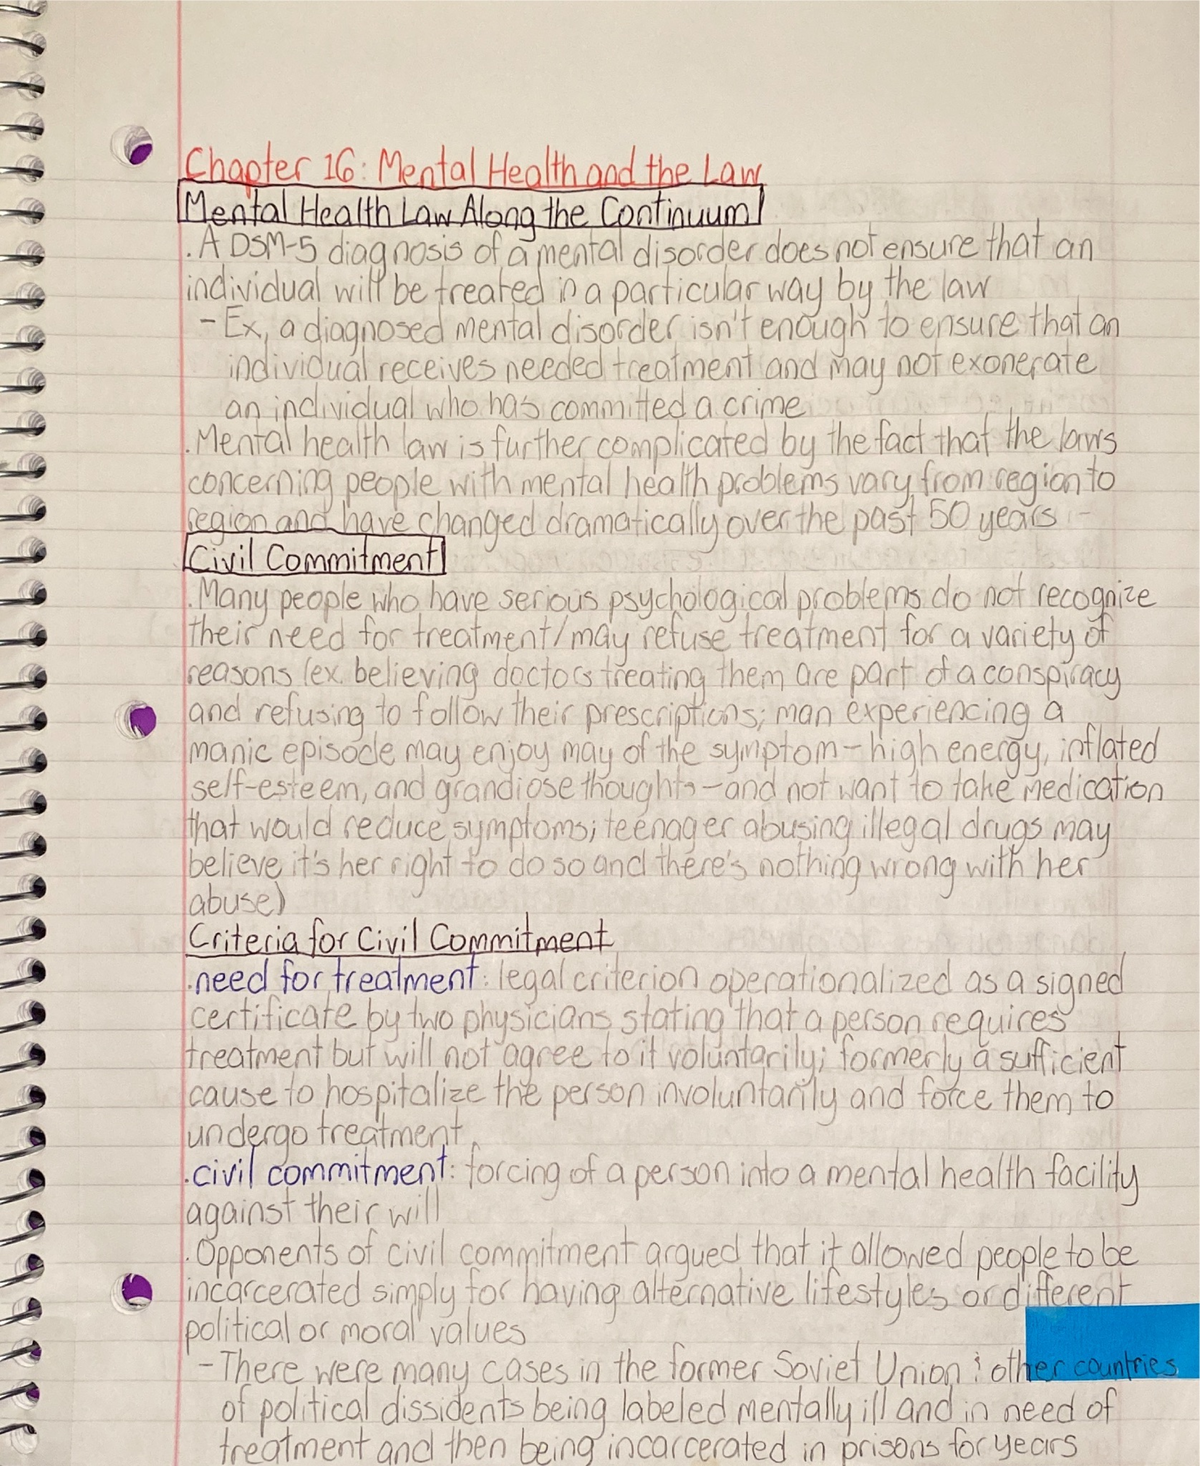 Chapter 16: Mental Health and the Law
Mental Health Law Along the Continuum
. A DSM-5 diagnosis of a mental disorder does not ensure that an
individual will be treated in a particular way by the law
- Ex, a diagnosed mental disorder isn't enough to ensure that an
individual receives needed treatment and may not exonerate
an individual who has committed a crime
. Mental health law is further complicated by the fact that the laws
concerning people with mental health problems vary from region to
region and have changed dramatically over the past 50 years
Civil Commitment
. Many people who have serious psychological problems do not recognize
their need for treatment/may refuse treatment for a variety of
reasons (ex. believing doctors treating them are part of a conspiracy
and refusing to follow their prescriptions; man experiencing a
manic episode may enjoy may of the symptom - high energy, inflated
self-esteem, and grandiose thoughts - and not want to take medication
that would reduce symptoms; teenager abusing illegal drugs may
believe it's her right to do so and there's nothing wrong with her
abuse)
Criteria for Civil Commitment
. need for treatment: legal criterion operationalized as a signed
certificate by two physicians stating that a person requires
treatment but will not agree to it voluntarily; formerly a sufficient
cause to hospitalize the person involuntarily and force them to
undergo treatment
. civil commitment: forcing of a person into a mental health facility
against their will
. Opponents of civil commitment argued that it allowed people to be
incarcerated simply for having alternative lifestyles or different
political or moral values
- There were many cases in the former Soviet Union & other countries
of political dissidents being labeled mentally ill and in need of
treatment and then being incarcerated in prisons for years